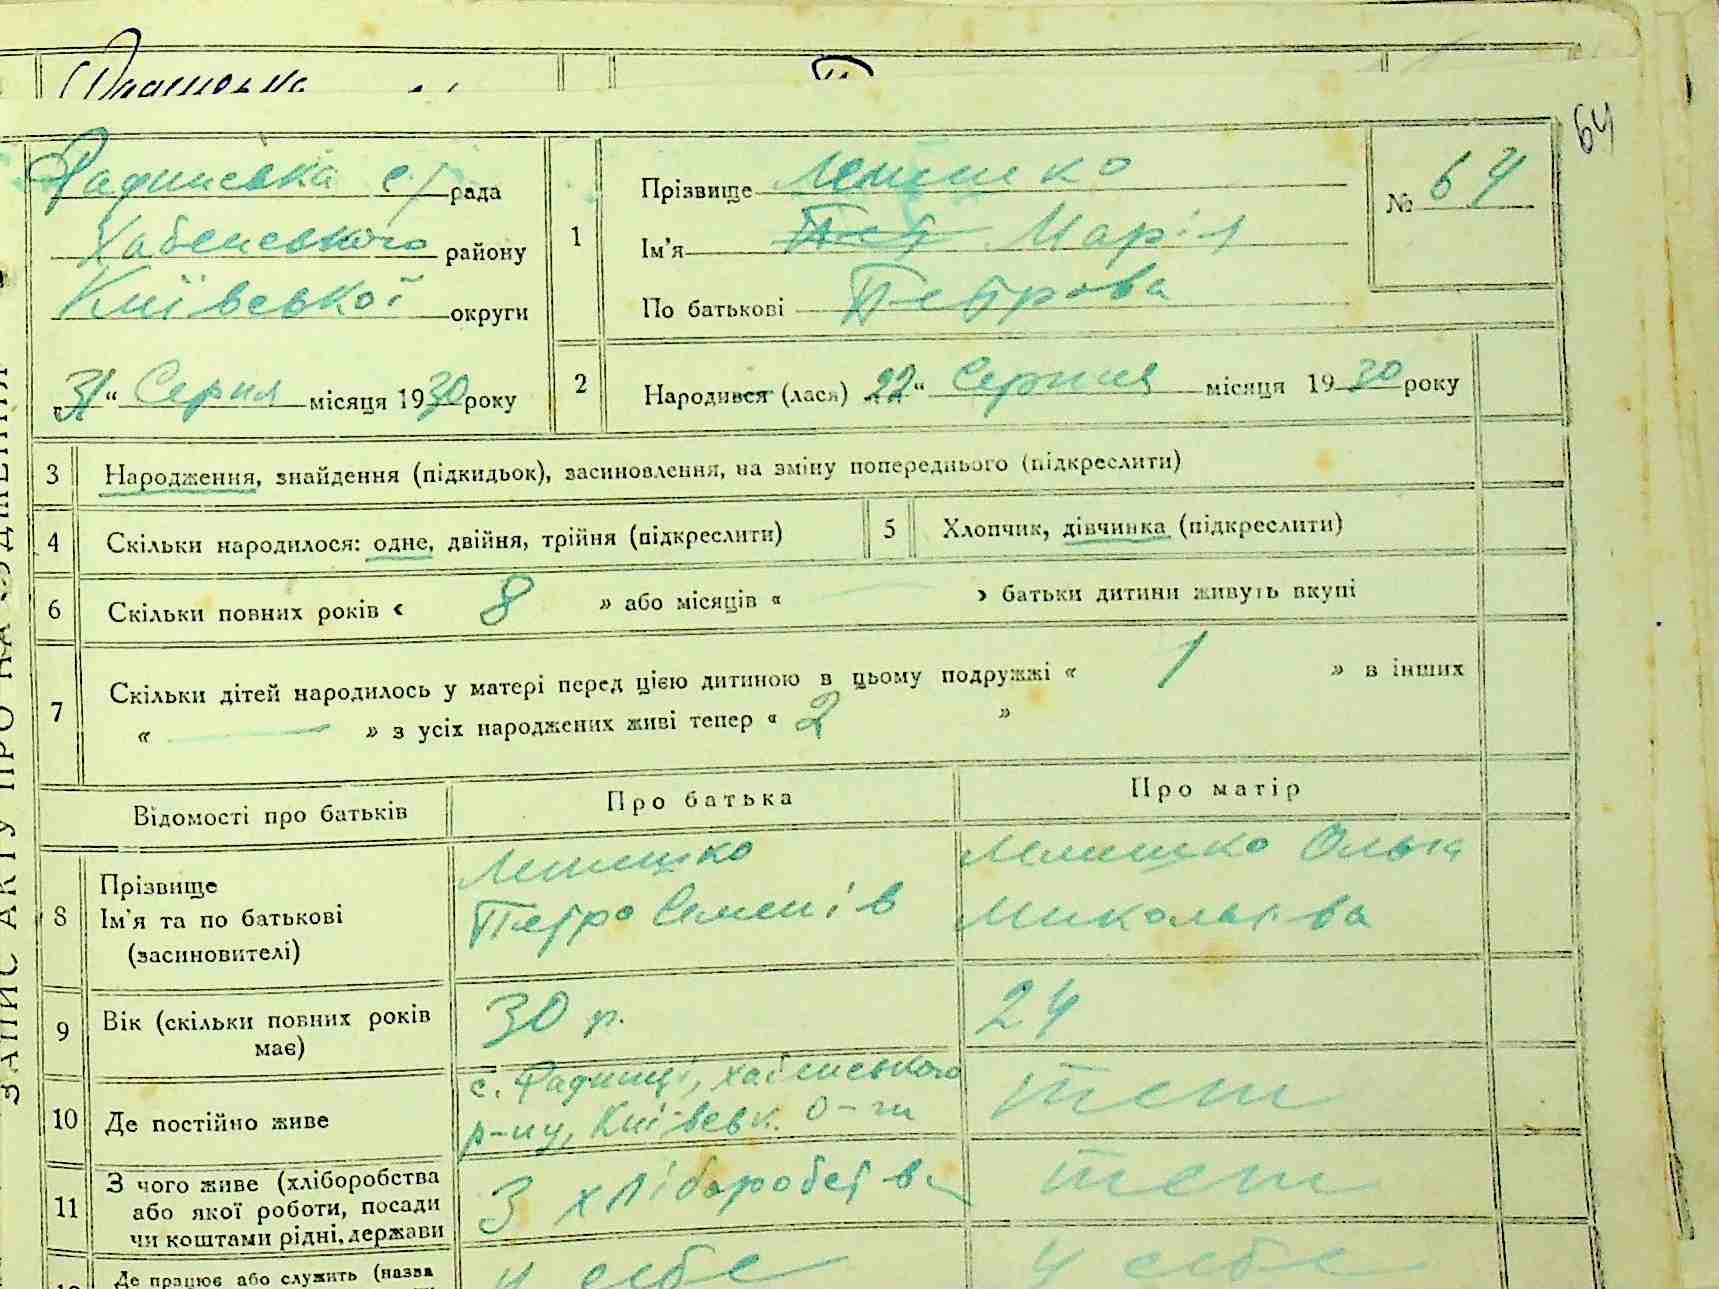 64
Радинська с/рада
Хабенського району
Київської округи
„31“ Серпня місяця 1930 року
1
Прізвище
Ім'я Пет Марія
По батькові Петрова
№ 64
2
Народився (лася) 22“ Серпня місяця 1930 року
3
Народження, знайдення (підкидьок), засиновлення, на зміну попереднього (підкреслити)
4
Скільки народилося: одне, двійня, трійня (підкреслити)
5
Хлопчик, дівчинка (підкреслити)
6
Скільки повних років « 8 » або місяців « — » батьки дитини живуть вкупі
7
Скільки дітей народилось у матері перед цією дитиною в цьому подружжі « 1 » в інших
« — » з усіх народжених живі тепер « 2 »
Відомості про батьків
Про батька
Про матір
8
Прізвище
Ім'я та по батькові
(засиновителі)
Петро Семенів
Ольга
Миколаєва
9
Вік (скільки повних років
має)
30 р.
24
10
Де постійно живе
с. Радинці, Хабенського
р-ну, Київськ. О-ги
теж
11
З чого живе (хліборобства
або якої роботи, посади
чи коштами рідні, держави
З хліборобства
теж
Де працює або служить (назва
у себе
у себе
ЗАПИС АКТУ ПРО НАРОДЖЕННЯ